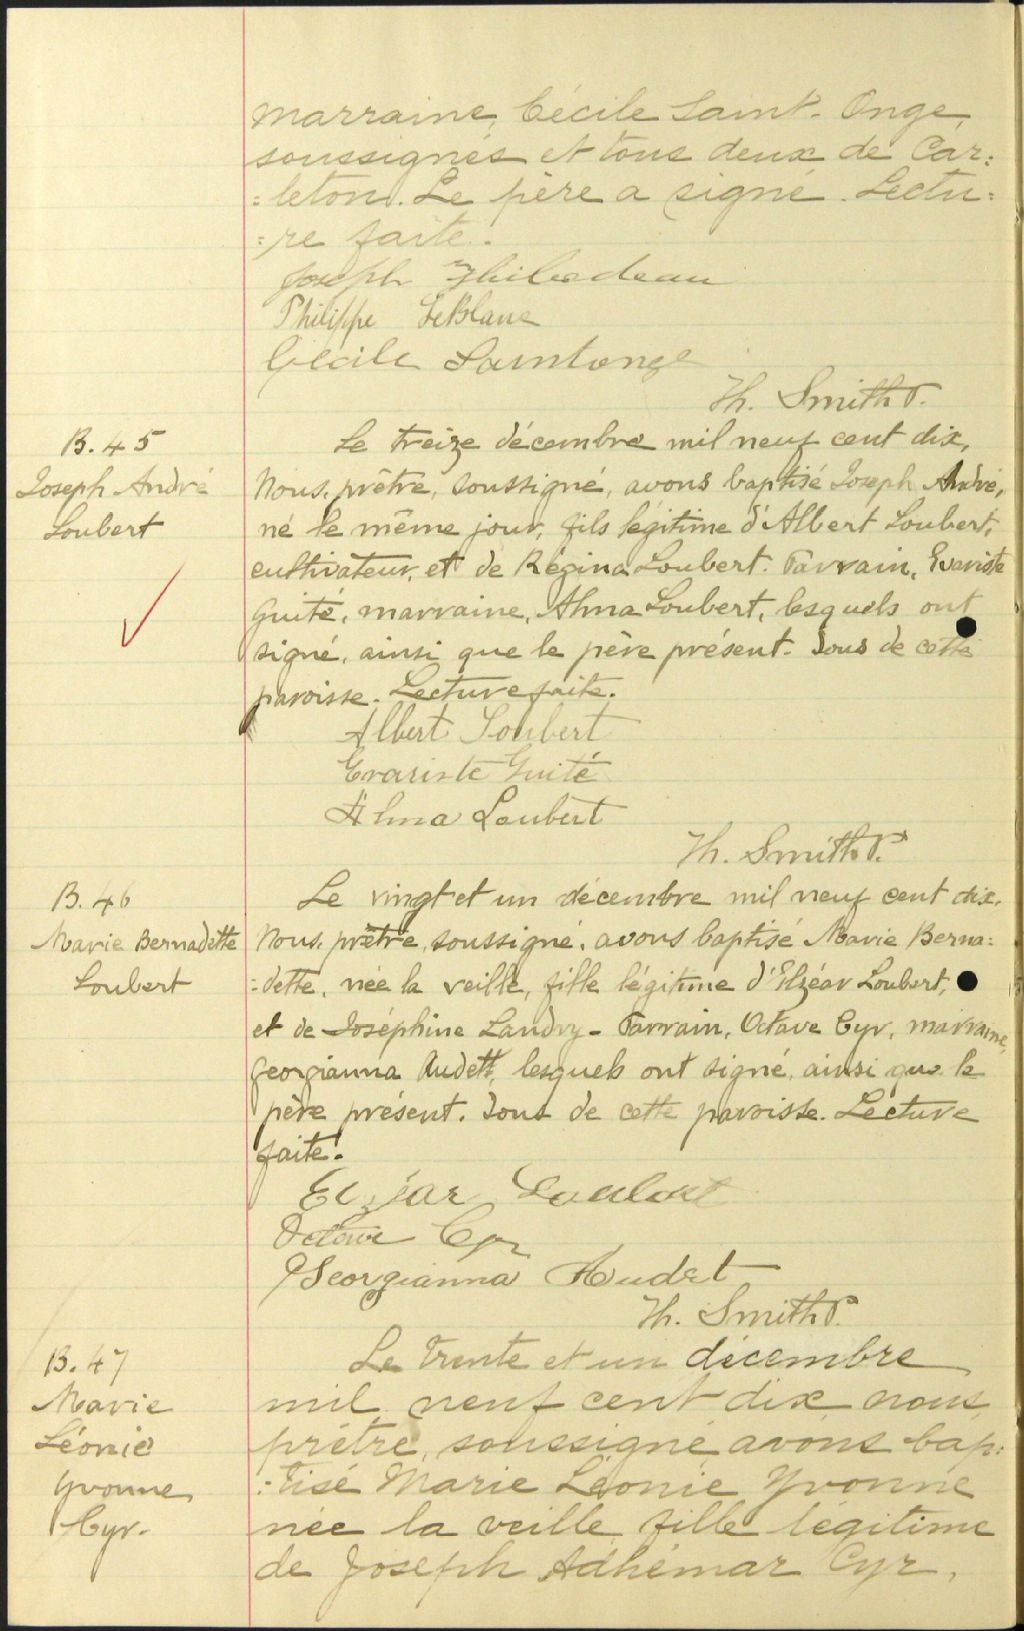 marraine, Cécile Saint-Onge,
soussignés et tous deux de Car=
=leton. Le père a signé. Lectu=
=re faite.
Joseph Thibodeau
Philippe LeBlanc
Cécile Saintonge
Th. Smith P.
B. 45
Joseph André
Loubert
Le treize décembre mil neuf cent dix,
Nous, prêtre, soussigné, avons baptisé Joseph André,
né le même jour, fils légitime d'Albert Loubert,
cultivateur, et de Régina Loubert. Parrain, Evariste
Guité, marraine, Alma Loubert, lesquels ont
signé, ainsi que le père présent. Tous de cette
paroisse. Lecture faite.
Albert Loubert
Evariste Guité
Alma Loubert
Th. Smith P.
B. 46
Marie Bernadette
Loubert
Le vingt et un décembre mil neuf cent dix,
Nous, prêtre, soussigné, avons baptisé Marie Berna=
=dette, née la veille, fille légitime d'Elzéar Loubert,
et de Joséphine Landry - Parrain, Octave Cyr, marraine,
Georgianna Audett, lesquels ont signé, ainsi que le
père présent. Tous de cette paroisse. Lecture
faite.
Elzéar Loubert
Octave Cyr
Georgianna Audet
Th. Smith P.
B. 47
Marie
Léonie
Yvonne
Cyr.
Le trente et un décembre
mil neuf cent dix, nous,
prêtre, soussigné, avons bap=
=tisé Marie Léonie Yvonne
née la veille, fille légitime
de Joseph Adhémar Cyr,